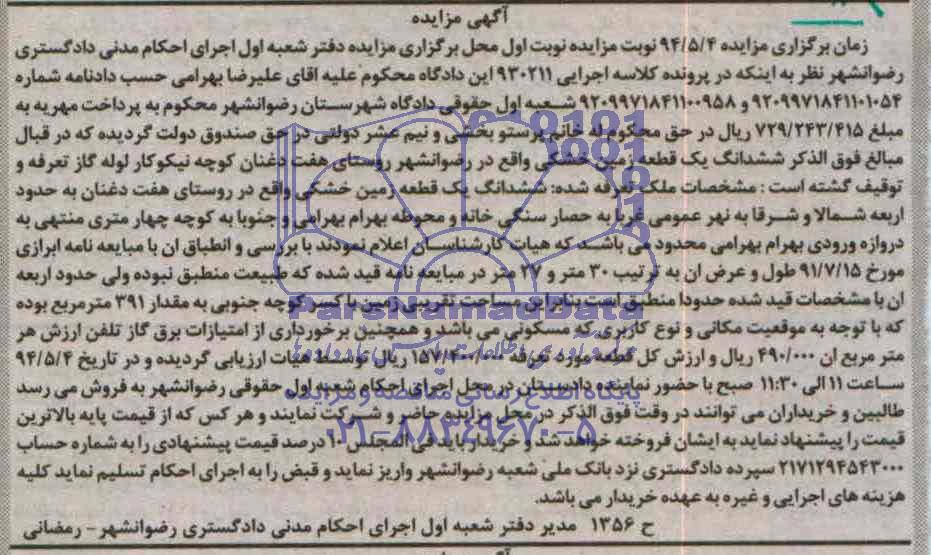 آگهی مزایده
زمان برگزاری مزایده ۹۴/۵/۴ نوبت مزایده نوبت اول محل برگزاری مزایده دفتر شعبه اول اجرای احکام مدنی دادگستری
رضوانشهر نظر به اینکه در پرونده کلاسه اجرایی ۹۳۰۲۱۱ این دادگاه محکوم علیه اقای علیرضا بهرامی حسب دادنامه شماره
۹۲۰۹۹۷۱۸۴۱۱۰۱۰۵۴ و ۹۲۰۹۹۷۱۸۴۱۱۰۰۹۵۸ شعبه اول حقوقی دادگاه شهرستان رضوانشهر محکوم به پرداخت مهریه به
مبلغ ۷۲۹/۲۴۳/۴۱۵ ریال در حق محکوم له خانم پرستو بخشی و نیم عشر دولتی در حق صندوق دولت گردیده که در قبال
مبالغ فوق الذکر ششدانگ یک قطعه زمین خشکی واقع در رضوانشهر روستای هفت دغنان کوچه نیکوکار لوله گاز تعرفه و
توقیف گشته است : مشخصات ملک تعرفه شده: ششدانگ یک قطعه زمین خشکی واقع در روستای هفت دغنان به حدود
اربعه شمالا و شرقا به نهر عمومی غربا به حصار سنگی خانه و محوطه بهرام بهرامی و جنوبا به کوچه چهار متری منتهی به
دروازه ورودی بهرام بهرامی محدود می باشد که هیات کارشناسان اعلام نمودند با بررسی و انطباق ان با مبایعه نامه ابرازی
مورخ ۹۱/۷/۱۵ طول و عرض ان به ترتیب ۳۰ متر و ۲۷ متر در مبایعه نامه قید شده که طبیعت منطبق نبوده ولی حدود اربعه
ان با مشخصات قید شده حدودا منطبق است بنابراین مساحت تقریبی زمین با کسر کوچه جنوبی به مقدار ۳۹۱ مترمربع بوده
که با توجه به موقعیت مکانی و نوع کاربری که مسکونی می باشد و همچنین برخورداری از امتیازات برق گاز تلفن ارزش هر
متر مربع ان ۴۹۰/۰۰۰ ریال و ارزش کل قطعه مورد تعرفه ۱۵۷/۴۰۰/۰۰۰ ریال توسط هیات ارزیابی گردیده و در تاریخ ۹۴/۵/۴
ساعت ۱۱ الی ۱۱:۳۰ صبح با حضور نماینده دادستان در محل اجرای احکام شعبه اول حقوقی رضوانشهر به فروش می رسد
طالبین و خریداران می توانند در وقت فوق الذکر در محل مزایده حاضر و شرکت نمایند و هر کس که از قیمت پایه بالاترین
قیمت را پیشنهاد نماید به ایشان فروخته خواهد شد و خریدار باید فی المجلس ۱۰ درصد قیمت پیشنهادی را به شماره حساب
۲۱۷۱۲۹۴۵۴۳۰۰۰ سپرده دادگستری نزد بانک ملی شعبه رضوانشهر واریز نماید و قبض را به اجرای احکام تسلیم نماید کلیه
هزینه های اجرایی و غیره به عهده خریدار می باشد.
ح ۱۳۵۶ مدیر دفتر شعبه اول اجرای احکام مدنی دادگستری رضوانشهر – رمضانی
ParsNamadData
پایگاه اطلاع رسانی مناقصه و مزایده
۰۲۱-۸۸۳۴۹۶۷۰-۵